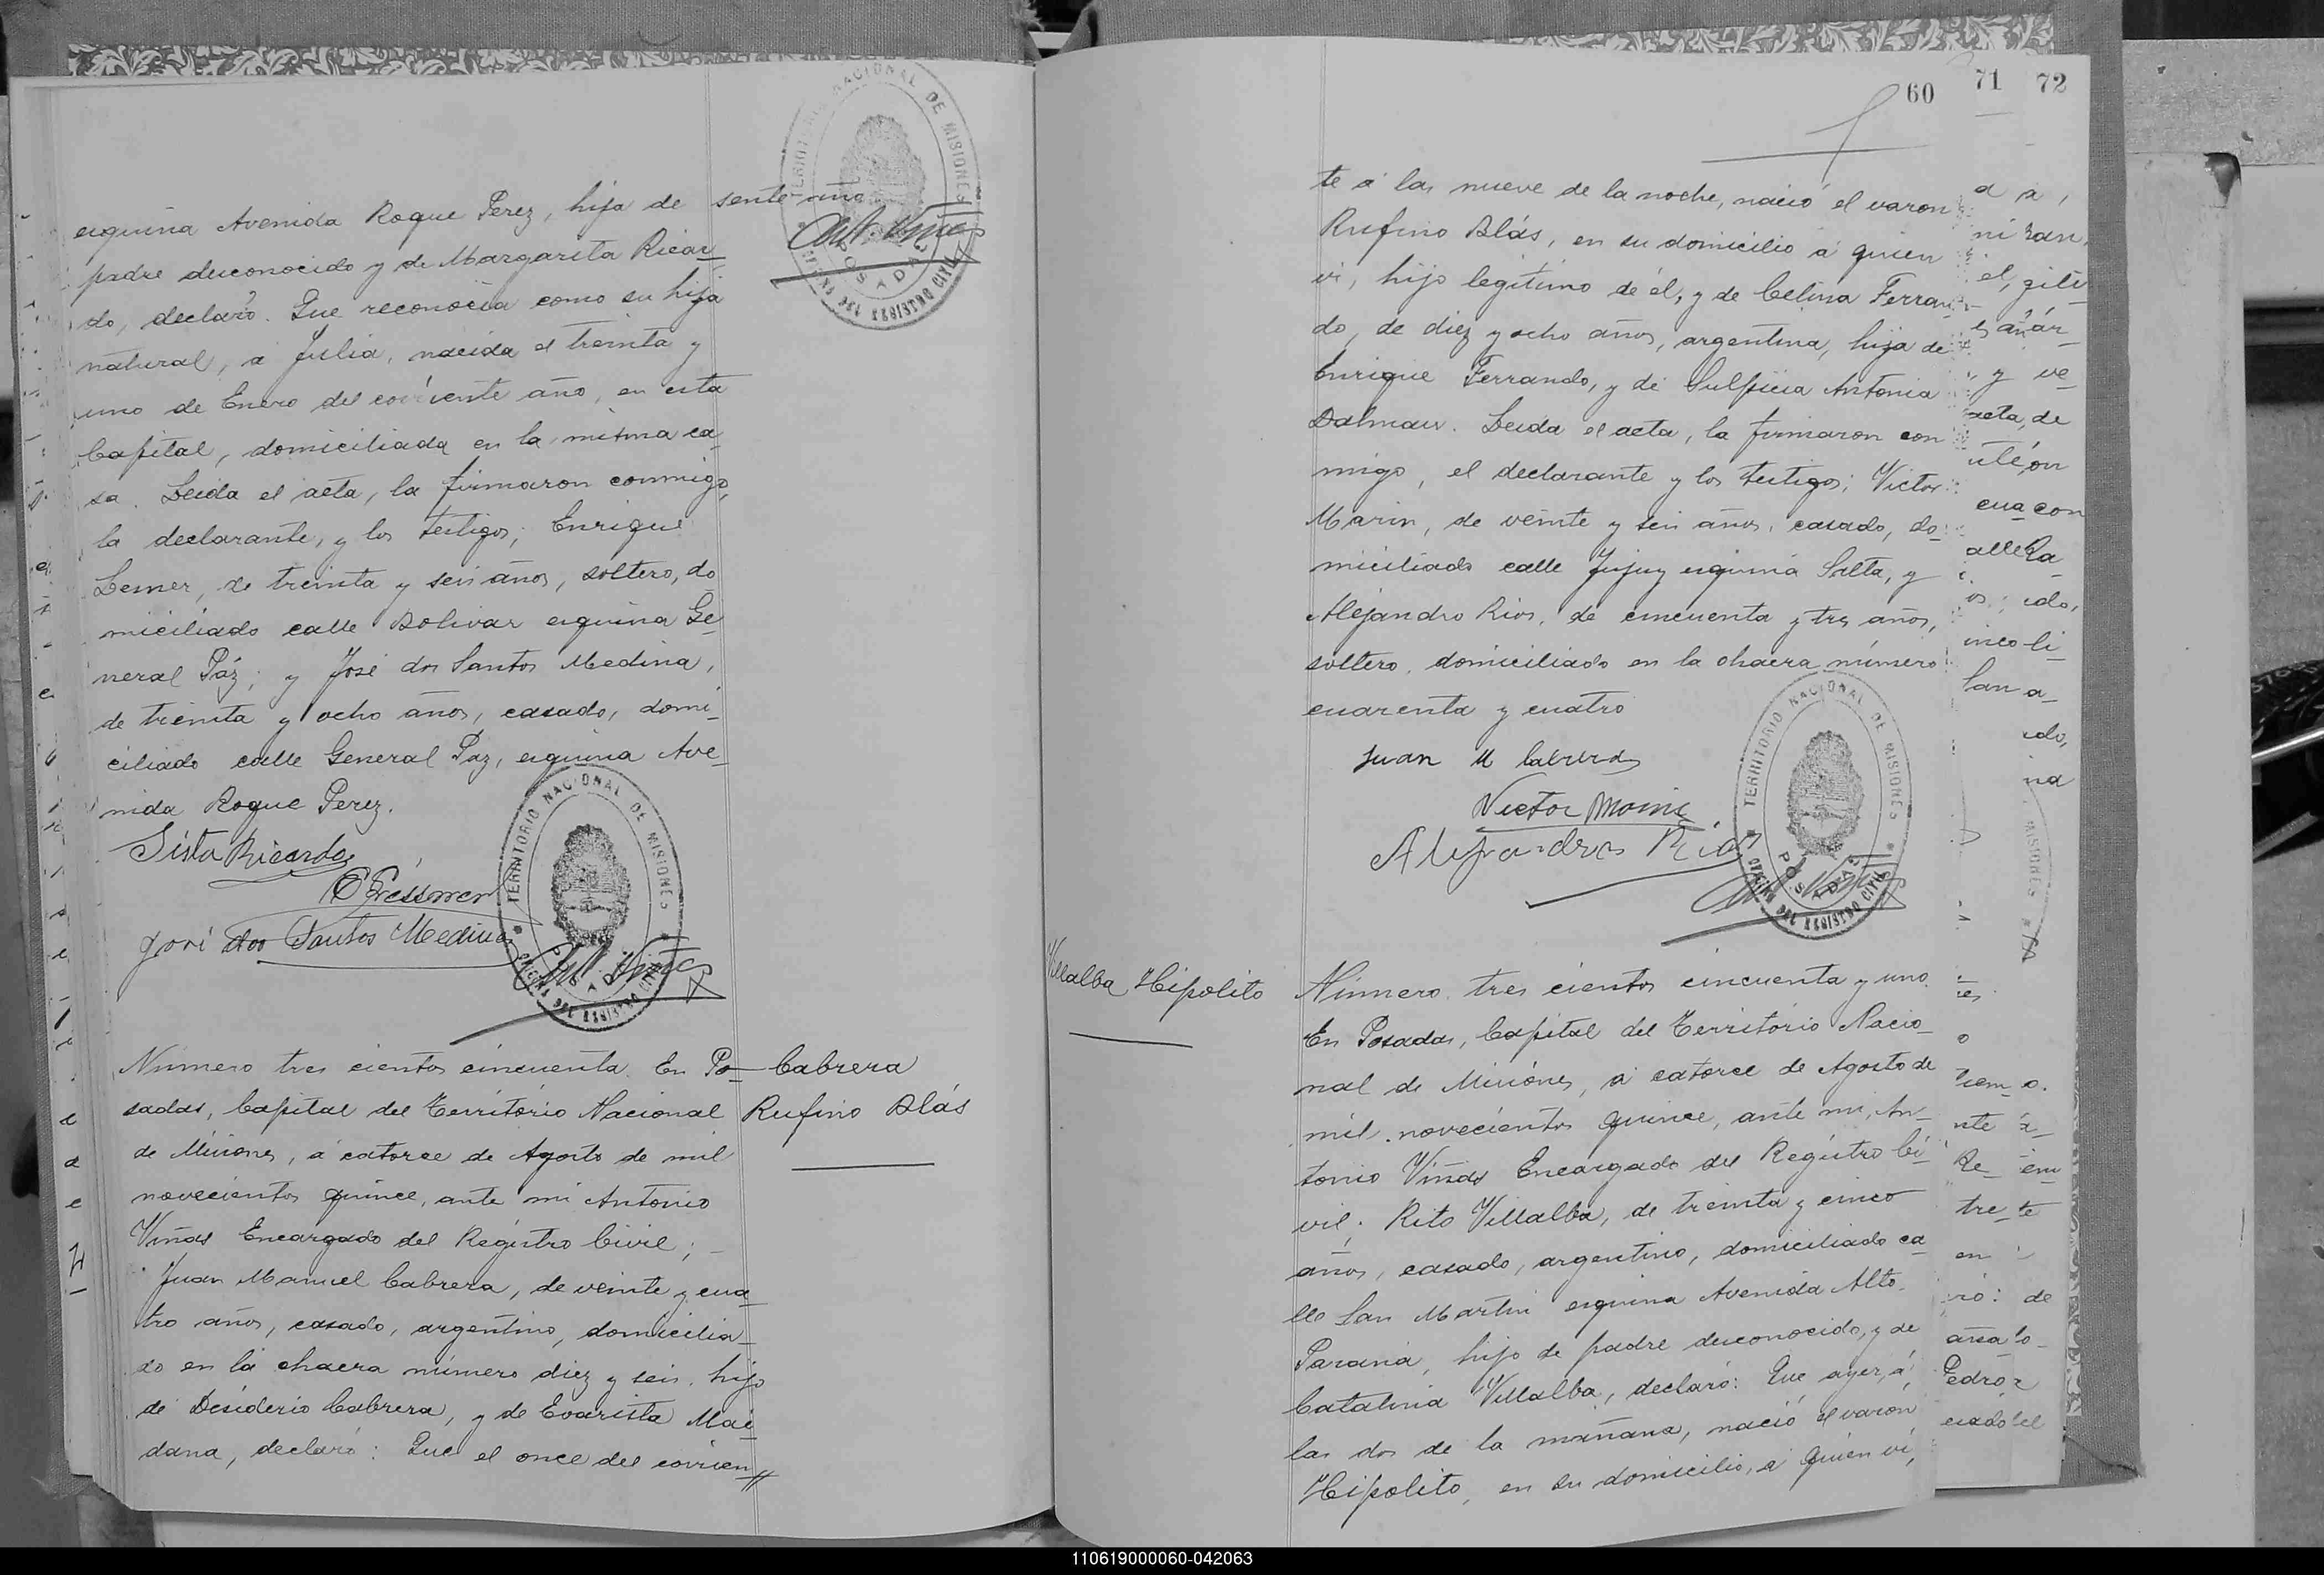 esquina Avenida Roque Perez, hija de
padre desconocido y de Margarita Ricar
do, declaró. Que reconocia como su hija
natural, a Julia, nacida el treinta y
uno de Enero del corriente año, en esta
Capital, domiciliada en la misma ca-
sa. Leida el acta, la firmaron conmigo,
la declarante, y los testigos; Enrique
Lesner, de treinta y seis años, soltero, do
miciliado calle Bolivar esquina Ge-
neral Páz; y José dos Santos Medina,
de treinta y ocho años, casado, domi-
ciliado calle General Paz, esquina Ave-
nida Roque Perez.
Sista Ricardo
José dos Santos Medina
TERRITORIO NACIONAL DE MISIONES
POSADAS
OFICINA DEL REGISTRO CIVIL
Número tres cientos cincuenta. En Po-
sadas, Capital del Territorio Nacional
de Misiones, á catorce de Agosto de mil
novecientos quince, ante mi Antonio
Viñas Encargado del Registro Civil;
Juan Manuel Cabrera, de veinte y cua-
tro años, casado, argentino, domicilia-
do en la chacra número diez y seis, hijo
de Desiderio Cabrera, y de Evarista Mai-
dana, declaró: Que el once del corrien-
sente año
TERRITORIO NACIONAL DE MISIONES
POSADAS
OFICINA DEL REGISTRO CIVIL
Cabrera
Rufino Blás
60
71
72
te á las nueve de la noche, nació el varon
Rufino Blás, en su domicilio á quien
vi, hijo legítimo de él, y de Celina Ferran-
do, de diez y ocho años, argentina, hija de
Enrique Ferrando, y de Sulpicia Antonia
Dalmau. Leida el acta, la firmaron con
migo, el declarante y los testigos; Victor
Marin, de veinte y seis años, casado, do-
miciliado calle Jujuy esquina Salta, y
Alejandro Rios, de cincuenta y tres años,
soltero, domiciliado en la chacra número
cuarenta y cuatro
Juan M Cabrera
Victor Marin
Alejandro Rios
TERRITORIO NACIONAL DE MISIONES
POSADAS
OFICINA DEL REGISTRO CIVIL
Villalba Hipolito
Número tres cientos cincuenta y uno
En Posadas, Capital del Territorio Nacio-
nal de Misiones, á catorce de Agosto de
mil novecientos quince, ante mi, An-
tonio Viñas Encargado del Registro Ci-
vil; Rito Villalba, de treinta y cinco
años, casado, argentino, domiciliado ca
lle San Martin esquina Avenida Alto
Paraná, hijo de padre desconocido, y de
Catalina Villalba, declaró: Que ayer, á
las dos de la mañana, nació el varon
Hipolito, en su domicilio, á quien vi,
110619000060-042063